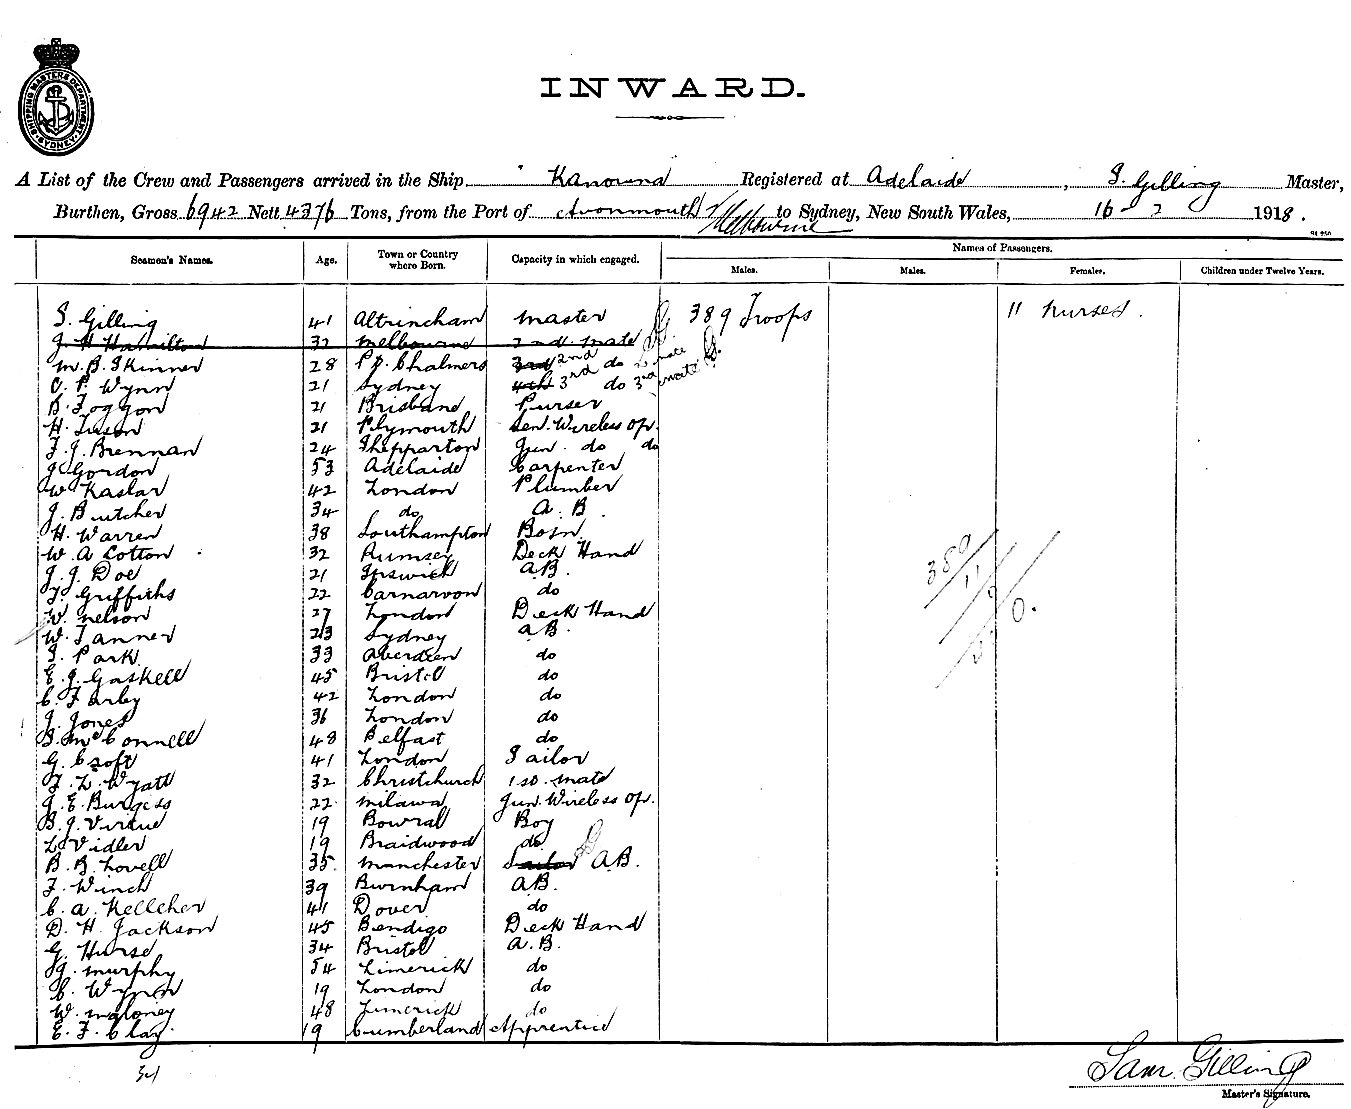 SHIPPING MASTERS DEPARTMENT SYDNEY
INWARD.
A List of the Crew and Passengers arrived in the Ship Kanowna Registered at Adelaide, S. Gilling Master,
Burthen, Gross 6942 Nett 4376 Tons, from the Port of Avonmouth / Melbourne to Sydney, New South Wales, 16-2 1918.
Seamen's Names. Age. Town or Country where Born. Capacity in which engaged. Names of Passengers.
Males. Males. Females. Children under Twelve Years.
S. Gilling 41 Altrincham Master 389 Troops 11 Nurses.
J H Hamilton 32 Melbourne 2nd mate
M. B. Skinner 28 Pt Chalmers 3rd 2nd do 2 mate
C. P. Wynn 21 Sydney 4th 3rd do 3rd mate
B. Foggon 21 Brisbane Purser
H. Tuson 21 Plymouth Sen. Wireless Op.
F. J. Brennan 24 Shepparton Jun. do do
J Gordon 53 Adelaide Carpenter
W Kaslar 42 London Plumber
J. Butcher 34 do A.B.
H. Warren 38 Southampton Bosn
W. A Cotton 32 Rumsey Deck Hand
J. J. Doe 21 Ipswich AB.
J. Griffiths 22 Carnarvon do
W. Nelson 27 London Deck Hand
W. Tanner 23 Sydney AB.
S. Park 33 Aberdeen do
E. J. Gaskell 45 Bristol do
C. F arley 42 London do
J. Jones 36 London do
S. McConnell 48 Belfast do
G. Croft 41 London Sailor
F. L. Wyatt 32 Christchurch 1st. mate
J. E. Burgess 22 Milawa Jun. Wireless Op.
B. J. Virtue 19 Bowral Boy
L. Vidler 19 Braidwood do
B. B. Lovell 35 Manchester Sailor AB.
F. Winch 39 Burnham AB.
C. A. Kelleher 41 Dover do
D. H. Jackson 45 Bendigo Deck Hand
G. Hurse 34 Bristol A.B.
J. Murphy 54 Limerick do
C. Wynn 19 London do
W. Maloney 48 Limerick do
E. F. Clay. 19 Cumberland Apprentice
389
11
0.
34
Sam. Gilling
Master's Signature.